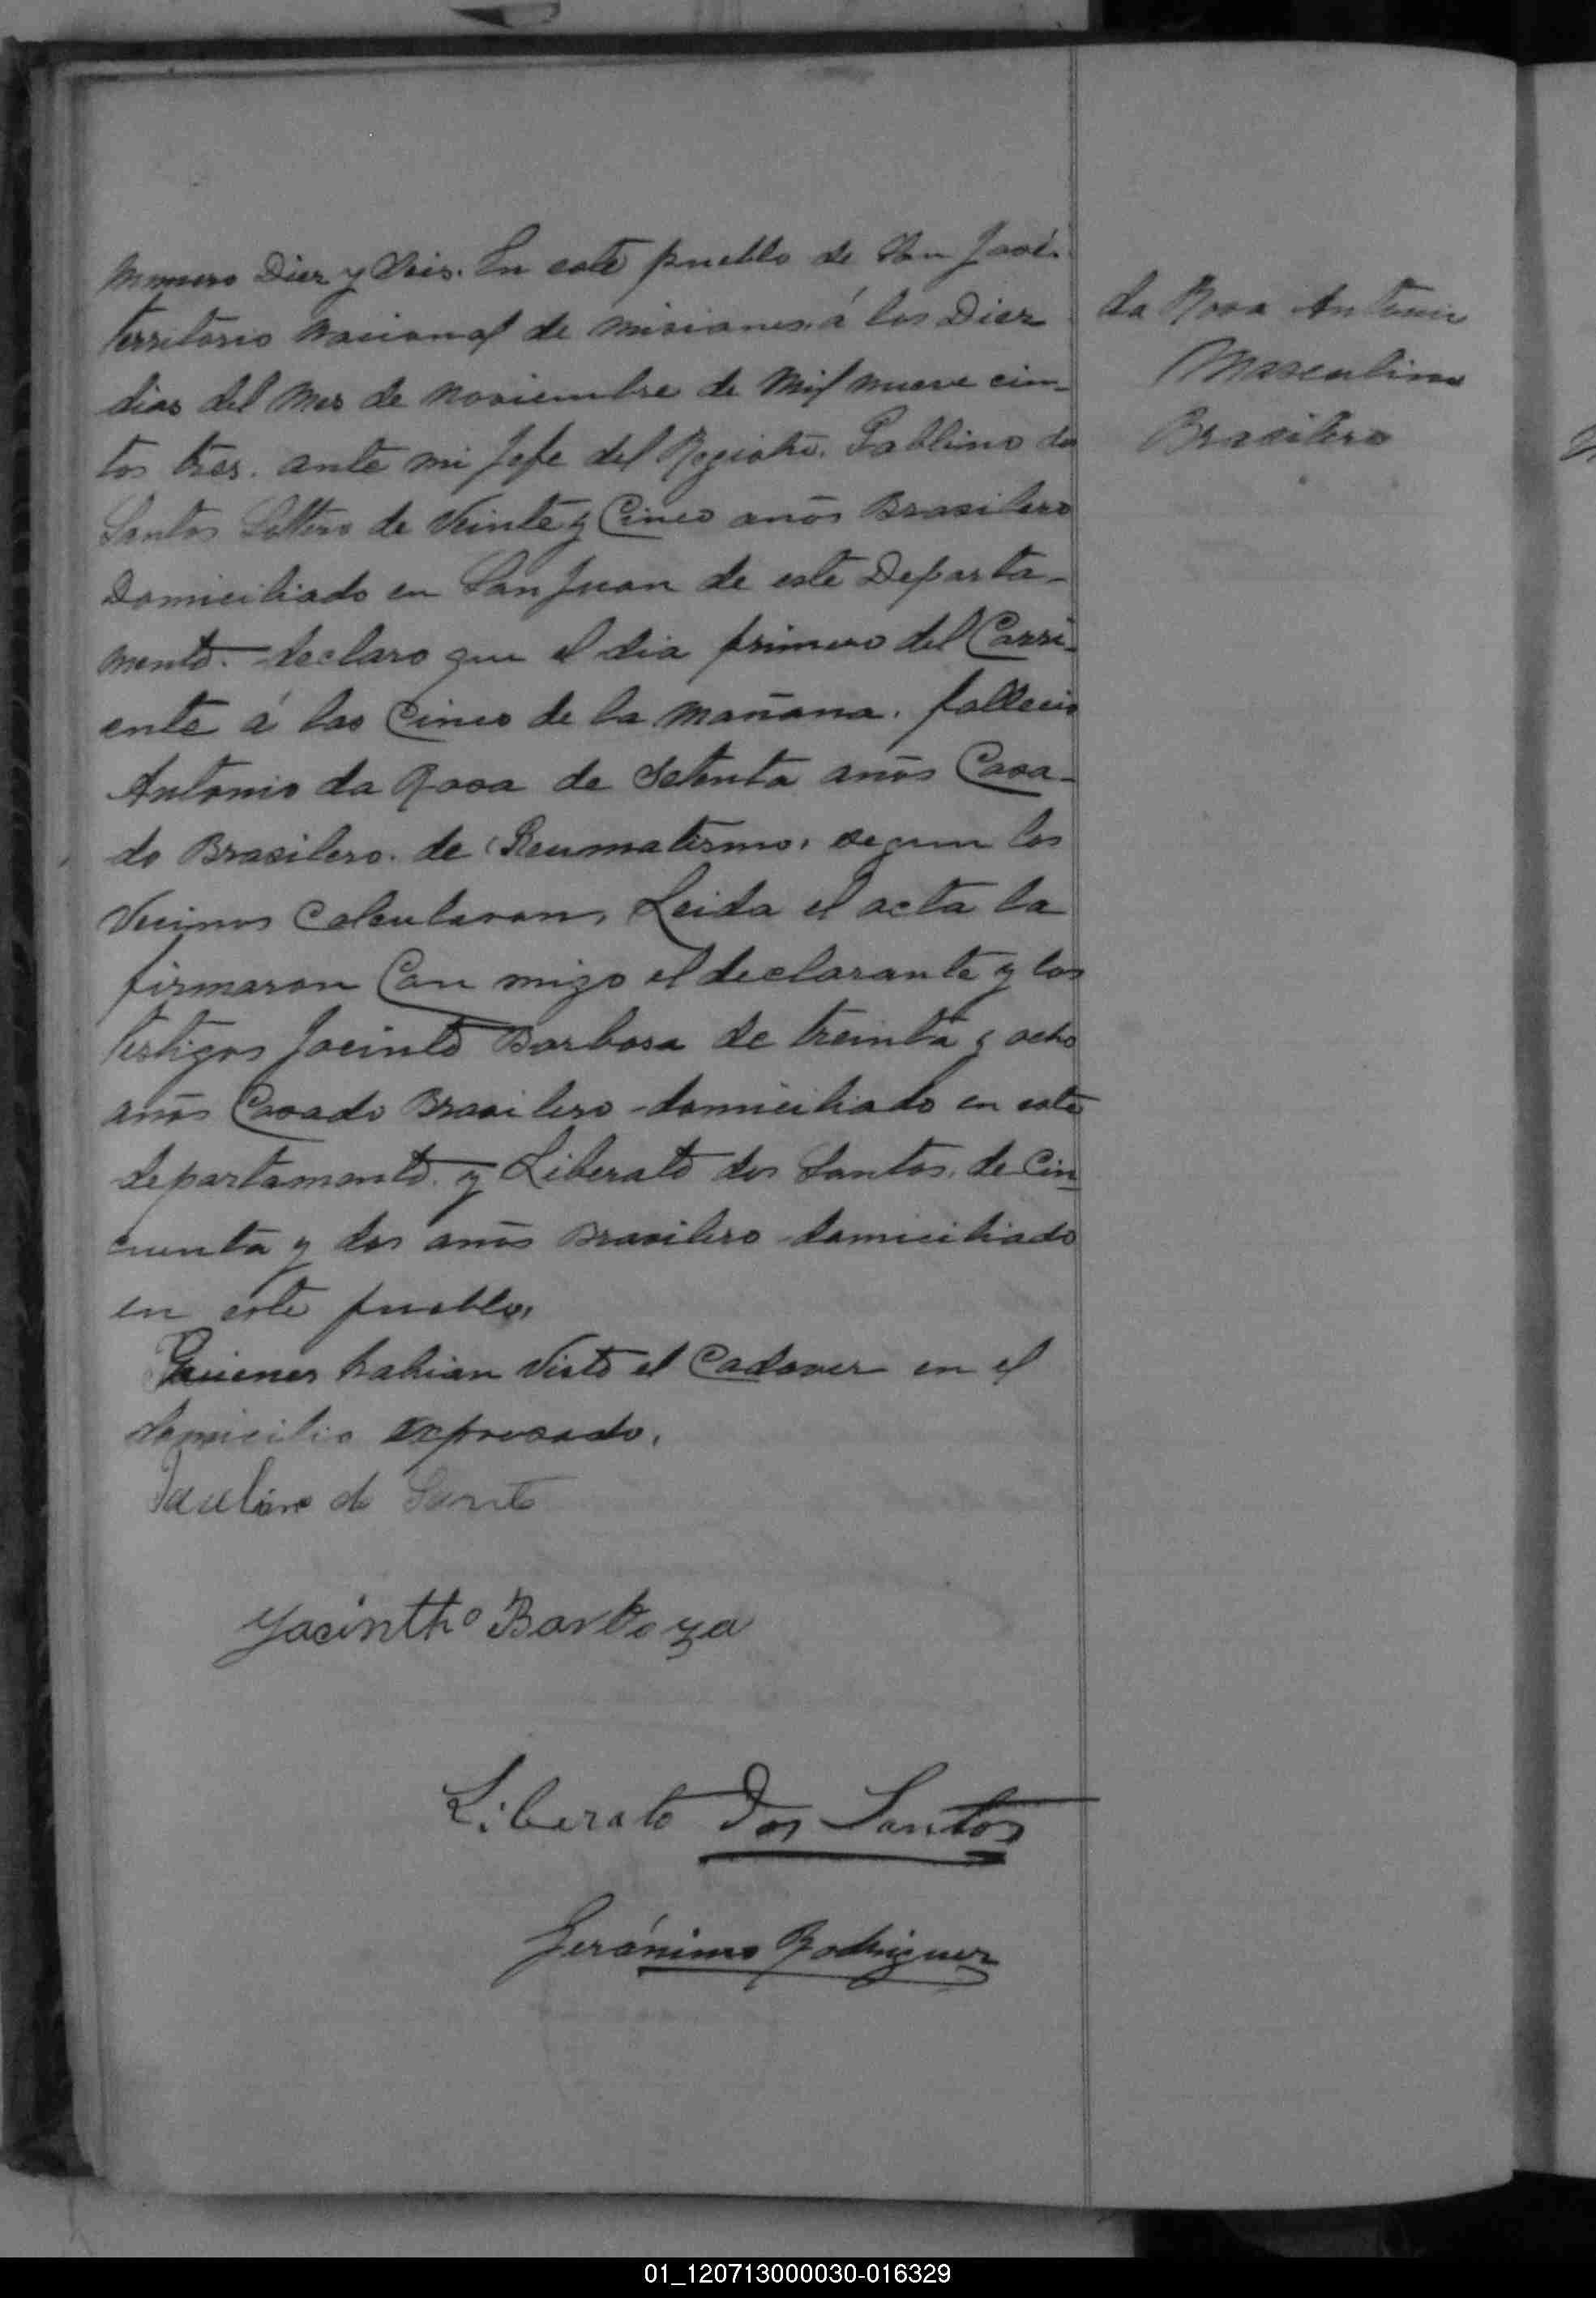 Numero Diez y Seis. En este pueblo de San Javier
territorio nacional de misiones á los Diez
dias del mes de noviembre de Mil nueve cien-
tos tres. ante mi Jefe del Registro. Pablino dos
Santos Soltero de Veinte y Cinco años Brasilero
Domiciliado en San Juan de este Departa-
mento. declaro que el dia primero del Corri-
ente á las Cinco de la mañana. fallecio
Antonio da Rosa de Setenta años Casa-
do Brasilero. de Reumatismo, segun los
Vecinos Calcularon, Leida el acta la
firmaron Con migo el declarante y los
testigos Jacinto Barbosa de treinta y ocho
años Casado Brasilero domiciliado en este
departamento. y Liberato dos Santos. de Cin
cuenta y dos años Brasilero domiciliado
en este pueblo,
Quienes habian Visto el Cadaver en el
domicilio expresado.
Paulino do Santo
Yacintho Barboza
Liberato Dos Santos
Gerónimo Rodriguez
da Rosa Antonio
Masculino
Brasilero
01_120713000030-016329